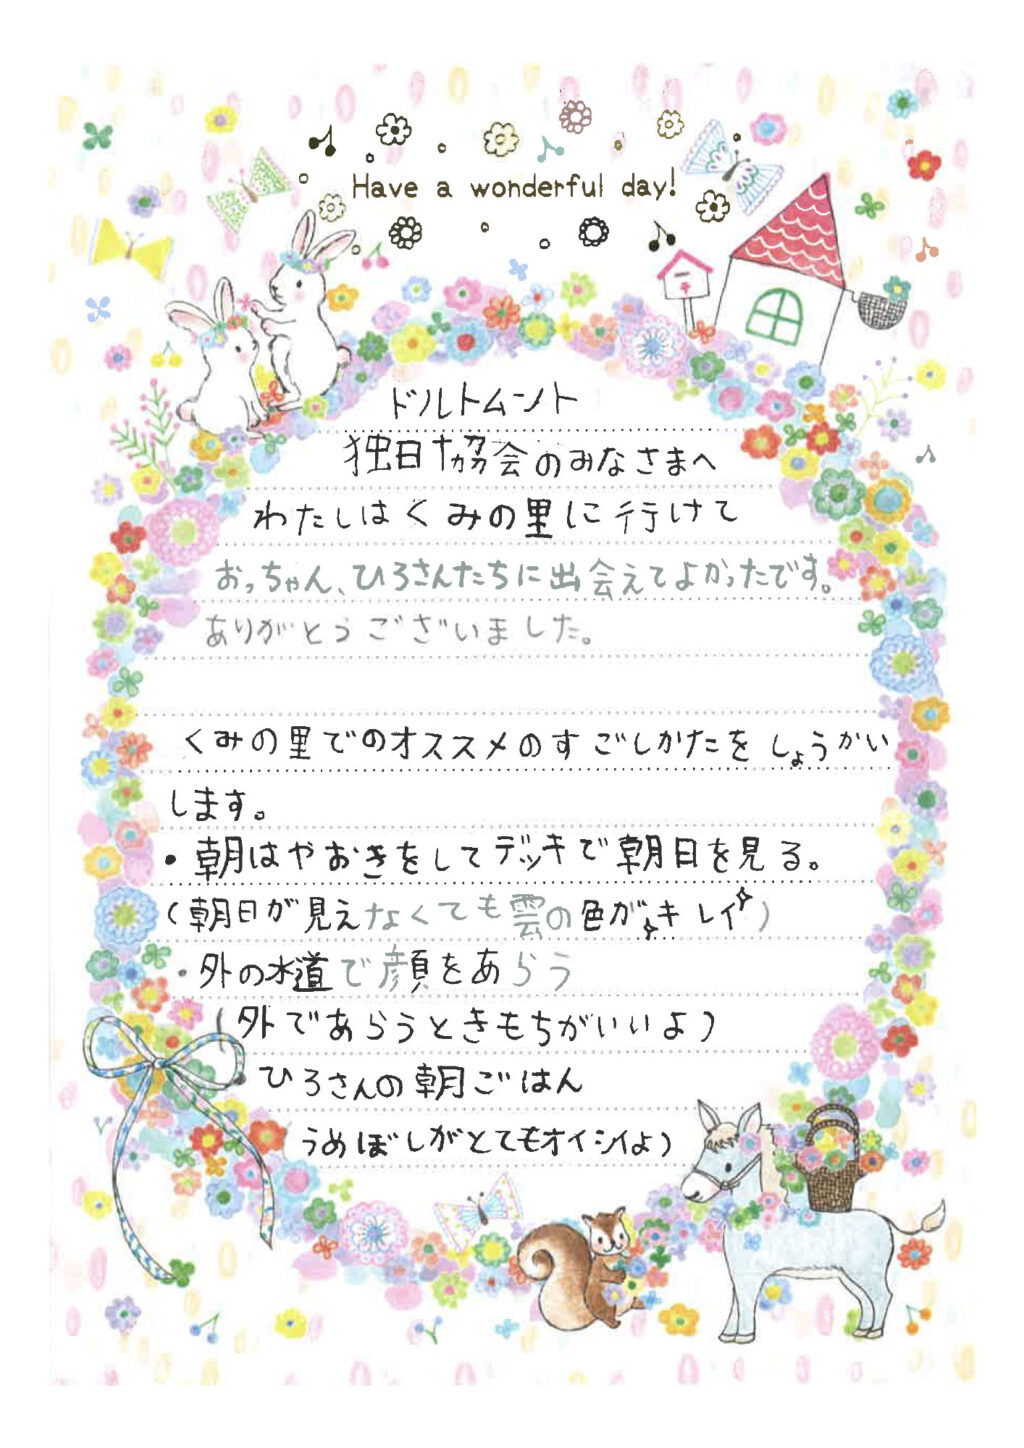 Have a wonderful day!
ドルトムント
独日協会のみなさまへ
わたしはくみの里に行けて
おっちゃん、ひろさんたちに出会えてよかったです。
ありがとうございました。
くみの里でのオススメのすごしかたをしょうかい
します。
・朝はやおきをしてデッキで朝日を見る。
(朝日が見えなくても雲の色がキレイ)
・外の水道で顔をあらう
(外であらうときもちがいいよ)
・ひろさんの朝ごはん
(うめぼしがとてもオイシイよ)